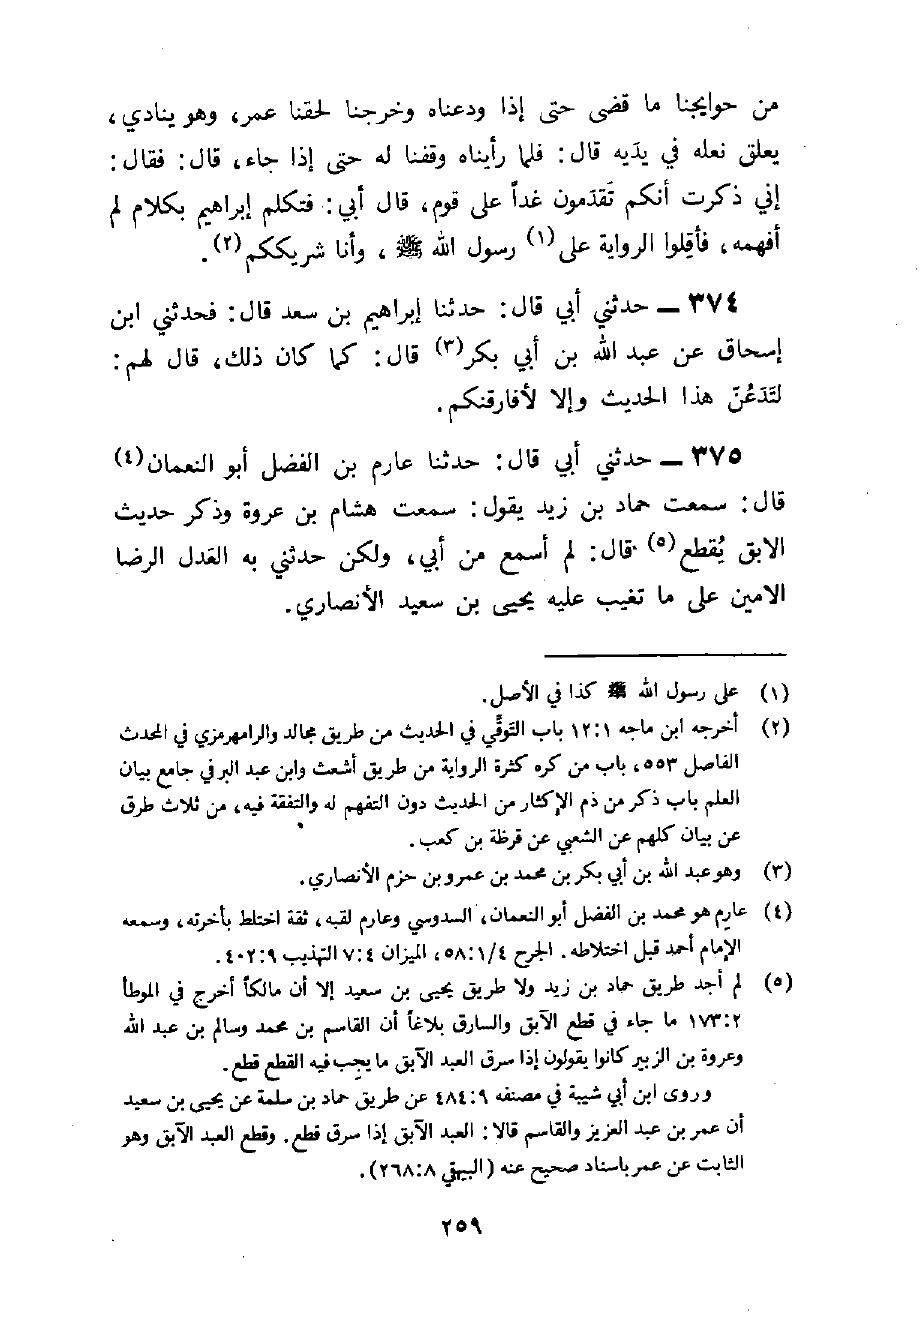 من حوايجنا ما قضى حتى إذا ودعناه وخرجنا لحقنا عمر، وهو ينادي،
يعلق نعله في يدَيه قال: فلما رأيناه وقفنا له حتى إذا جاء، قال: فقال:
إني ذكرت أنكم تَقدَمون غداً على قوم، قال أبي: فتكلم إبراهيم بكلام لم
أفهمه، فأقِلوا الرواية على(١) رسول الله ﷺ، وأنا شريككم(٢).
٣٧٤ ــ حدثني أبي قال: حدثنا إبراهيم بن سعد قال: فحدثني ابن
إسحاق عن عبد الله بن أبي بكر(٣) قال: كما كان ذلك، قال لهم:
لتَدَعُنّ هذا الحديث وإلا لأفارقنكم.
٣٧٥ ــ حدثني أبي قال: حدثنا عارم بن الفضل أبو النعمان(٤)
قال: سمعت حماد بن زيد يقول: سمعت هشام بن عروة وذكر حديث
الابق يُقطع(٥) قال: لم أسمع من أبي، ولكن حدثني به العَدل الرضا
الامين على ما تغيب عليه يحيى بن سعيد الأنصاري.
(١) على رسول الله ﷺ كذا في الأصل.
(٢) أخرجه ابن ماجه ١٢:١ باب التوقّي في الحديث من طريق مجالد والرامهرمزي في المحدث
الفاصل ٥٥٣، باب من كره كثرة الرواية من طريق أشعث وابن عبد البر في جامع بيان
العلم باب ذكر من ذم الإكثار من الحديث دون التفهم له والتفقة فيه، من ثلاث طرق
عن بيان كلهم عن الشعبي عن قرظة بن كعب.
(٣) وهو عبد الله بن أبي بكر بن محمد بن عمرو بن حزم الأنصاري.
(٤) عارم هو محمد بن الفضل أبو النعمان، السدوسي وعارم لقبه، ثقة اختلط بأخرته، وسمعه
الإمام أحمد قبل اختلاطه. الجرح ٥٨:١/٤، الميزان ٧:٤ التهذيب ٤٠٢:٩.
(٥) لم أجد طريق حماد بن زيد ولا طريق يحيى بن سعيد إلا أن مالكاً أخرج في الموطأ
١٧٣:٢ ما جاء في قطع الآبق والسارق بلاغاً أن القاسم بن محمد وسالم بن عبد الله
وعروة بن الزبير كانوا يقولون إذا سرق العبد الآبق ما يجب فيه القطع قطع.
وروى ابن أبي شيبة في مصنفه ٤٨٤:٩ عن طريق حماد بن سلمة عن يحيى بن سعيد
أن عمر بن عبد العزيز والقاسم قالا: العبد الآبق إذا سرق قطع. وقطع العبد الآبق وهو
الثابت عن عمر باسناد صحيح عنه (البيهقي ٢٦٨:٨).
٢٥٩